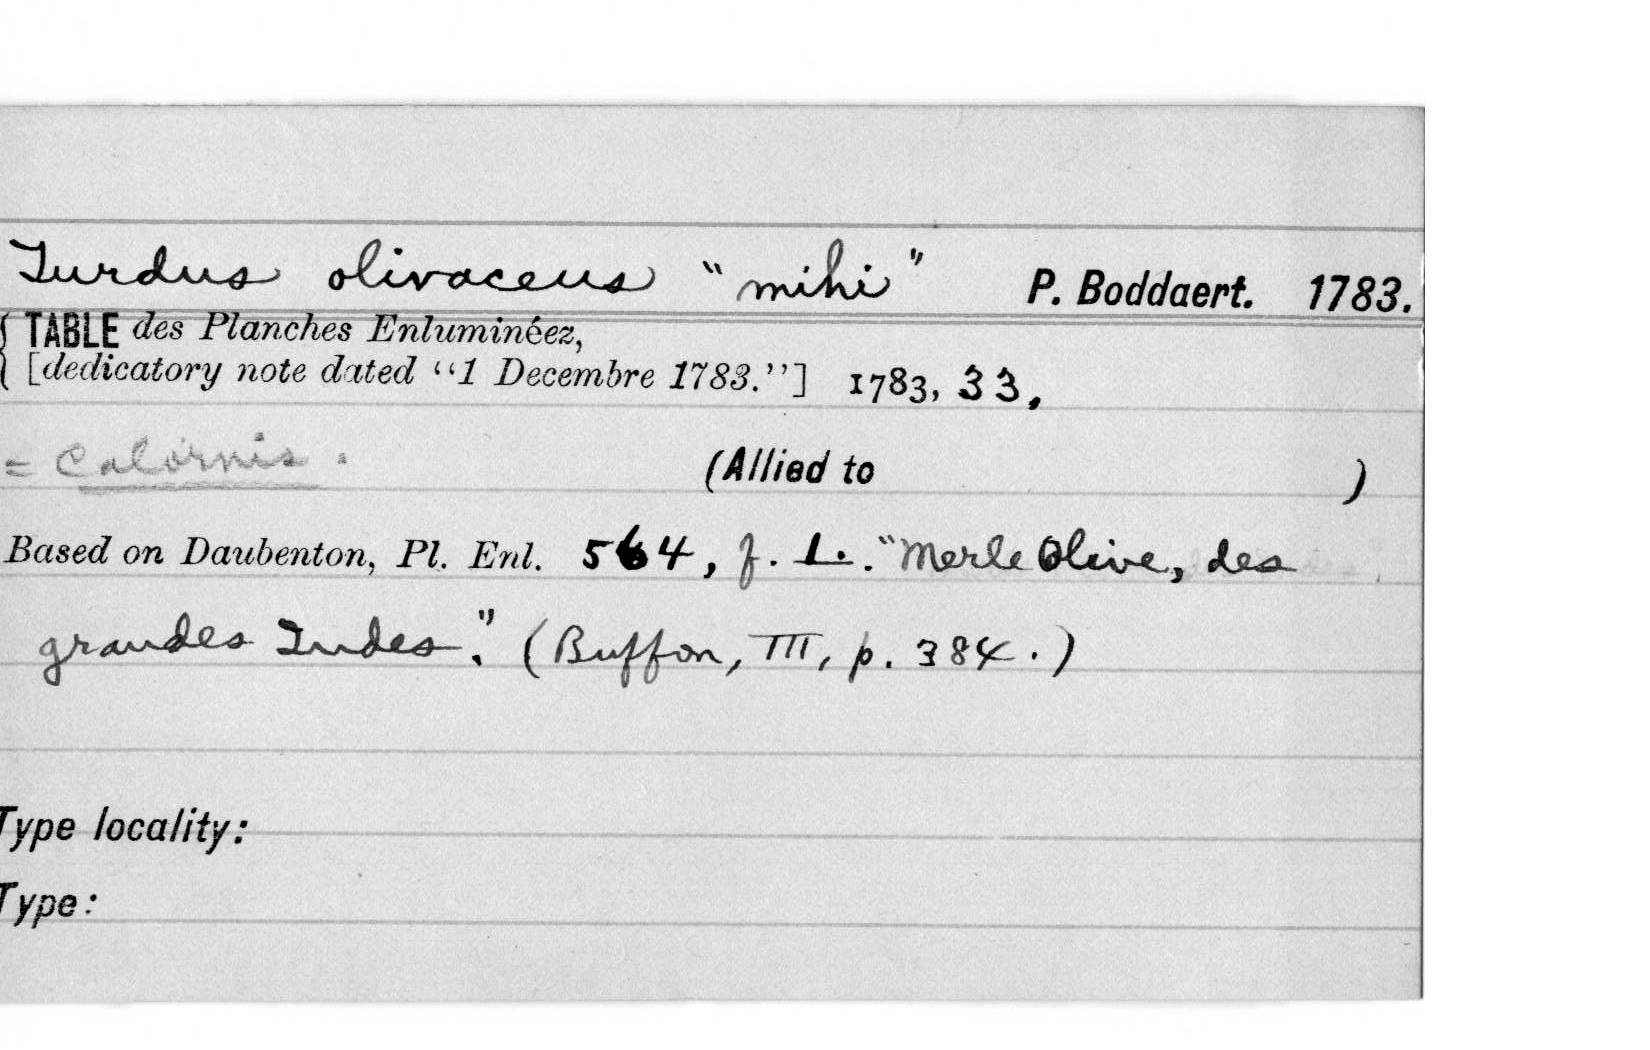 Turdus olivaceus "mihi" P. Boddaert. 1783.
TABLE des Planches Enluminéez,
[dedicatory note dated "1 Decembre 1783."] 1783, 33.
= Calornis. (Allied to )
Based on Daubenton, Pl. Enl. 564, f. 1. "Merle Olive, des
grandes Indes." (Buffon, III, p. 384.)
Type locality:
Type: